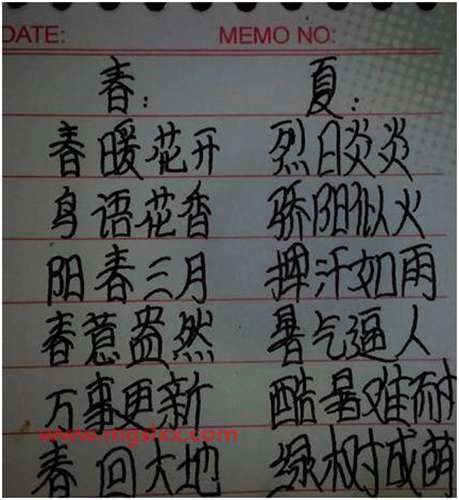 DATE: MEMO NO:
春: 夏:
春暖花开 烈日炎炎
鸟语花香 骄阳似火
阳春三月 挥汗如雨
春意盎然 暑气逼人
万事更新 酷暑难耐
www.mgslxx.com
春回大地 绿树成荫